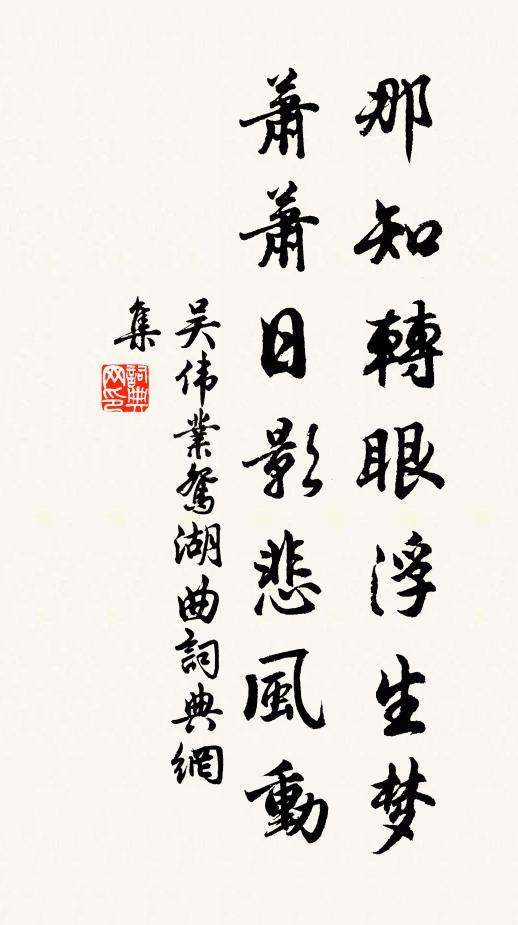 那知轉眼浮生梦
蕭蕭日影悲風動
吴伟業鴛湖曲詞典網
集
詞典
网印